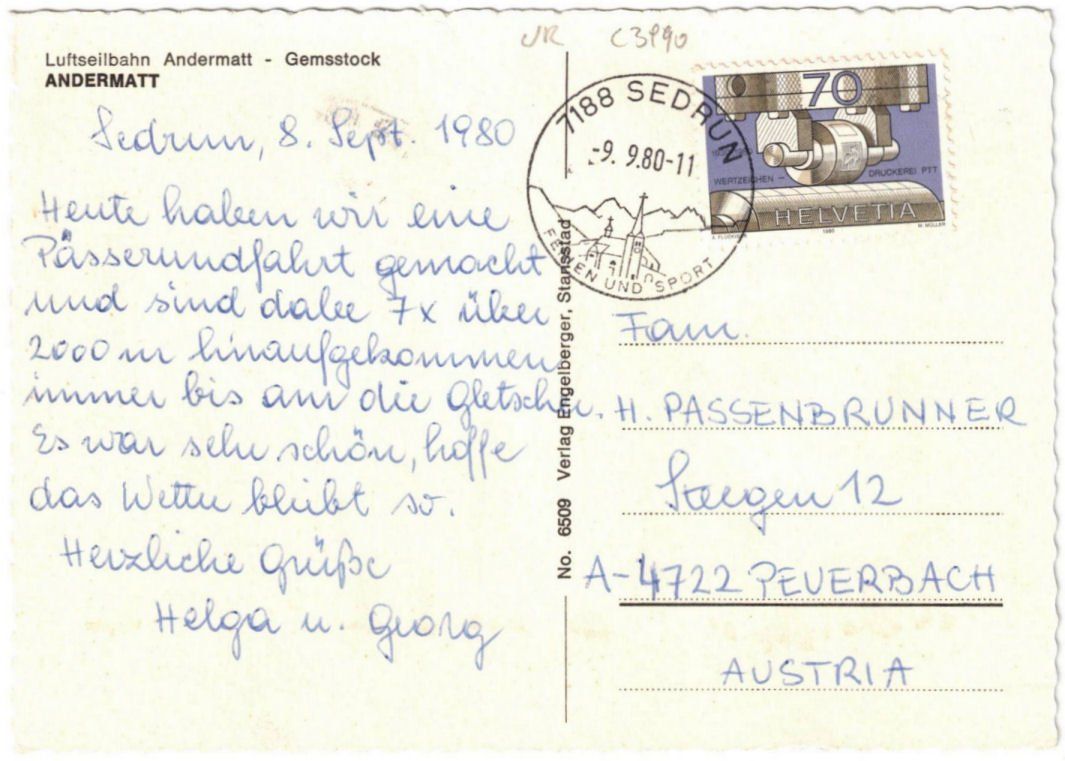 UR C3990
Luftseilbahn Andermatt - Gemsstock
ANDERMATT
Sedrun, 8. Sept. 1980
Heute haben wir eine
Pässerundfahrt gemacht
und sind dabei 7x über
2000 m hinaufgekommen
immer bis an die Gletscher.
Es war sehr schön, hoffe
das Wetter bleibt so.
Herzliche Grüße
Helga u. Georg
No. 6509 Verlag Engelberger, Stansstad
7188 SEDRUN
-9. 9.80-11
FERIEN UND SPORT
70
WERTZEICHEN - DRUCKEREI PTT
HELVETIA
1980
M. MÜLLER
Fam.
H. PASSENBRUNNER
Steegen 12
A-4722 PEUERBACH
AUSTRIA